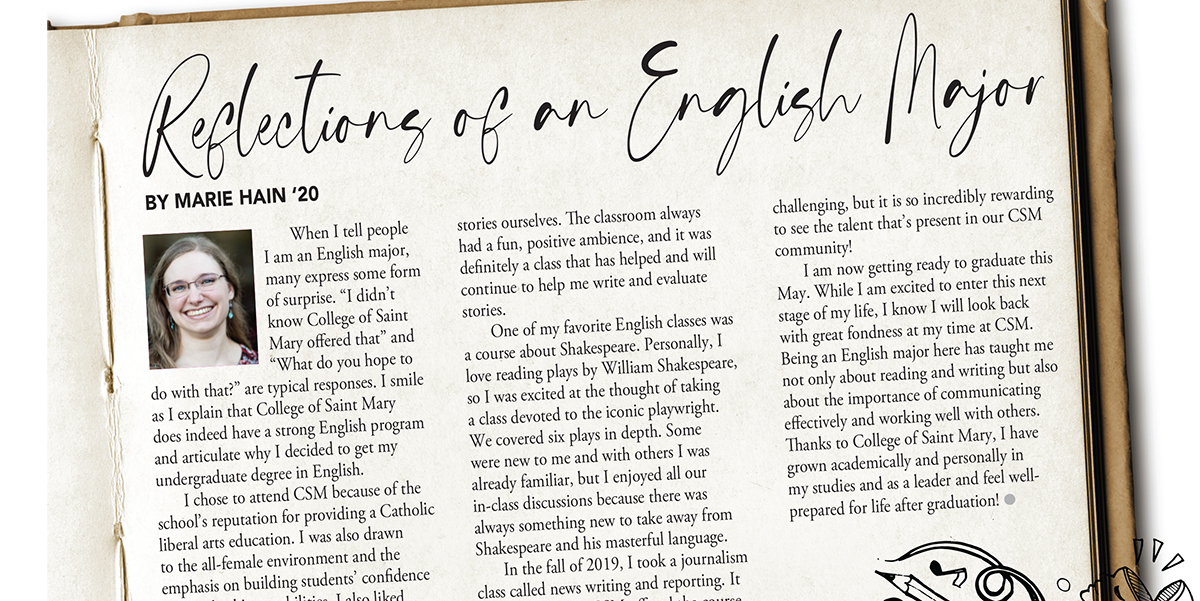 Reflections of an English Major
BY MARIE HAIN ’20
When I tell people
I am an English major,
many express some form
of surprise. “I didn’t
know College of Saint
Mary offered that” and
“What do you hope to
do with that?” are typical responses. I smile
as I explain that College of Saint Mary
does indeed have a strong English program
and articulate why I decided to get my
undergraduate degree in English.
I chose to attend CSM because of the
school’s reputation for providing a Catholic
liberal arts education. I was also drawn
to the all-female environment and the
emphasis on building students’ confidence
I also liked
stories ourselves. The classroom always
had a fun, positive ambience, and it was
definitely a class that has helped and will
continue to help me write and evaluate
stories.
One of my favorite English classes was
a course about Shakespeare. Personally, I
love reading plays by William Shakespeare,
so I was excited at the thought of taking
a class devoted to the iconic playwright.
We covered six plays in depth. Some
were new to me and with others I was
already familiar, but I enjoyed all our
in-class discussions because there was
always something new to take away from
Shakespeare and his masterful language.
In the fall of 2019, I took a journalism
class called news writing and reporting. It
the course
challenging, but it is so incredibly rewarding
to see the talent that’s present in our CSM
community!
I am now getting ready to graduate this
May. While I am excited to enter this next
stage of my life, I know I will look back
with great fondness at my time at CSM.
Being an English major here has taught me
not only about reading and writing but also
about the importance of communicating
effectively and working well with others.
Thanks to College of Saint Mary, I have
grown academically and personally in
my studies and as a leader and feel well-
prepared for life after graduation!